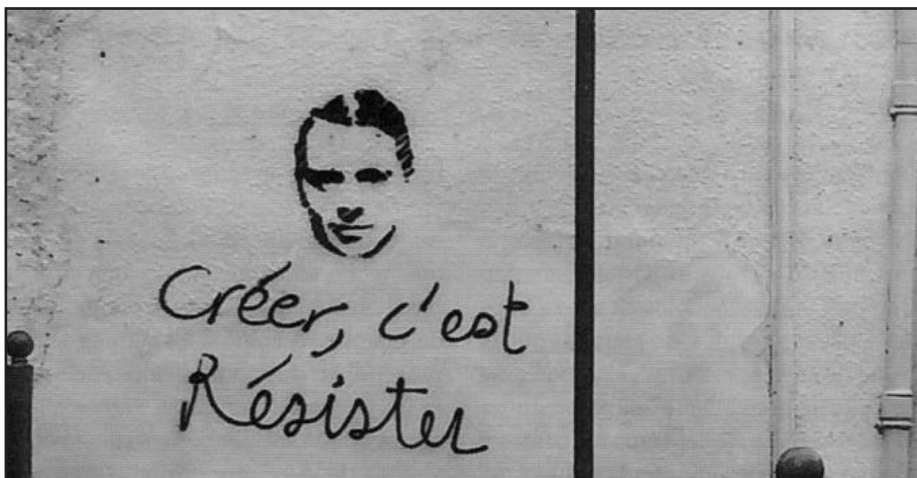 Créer, c'est
Résister